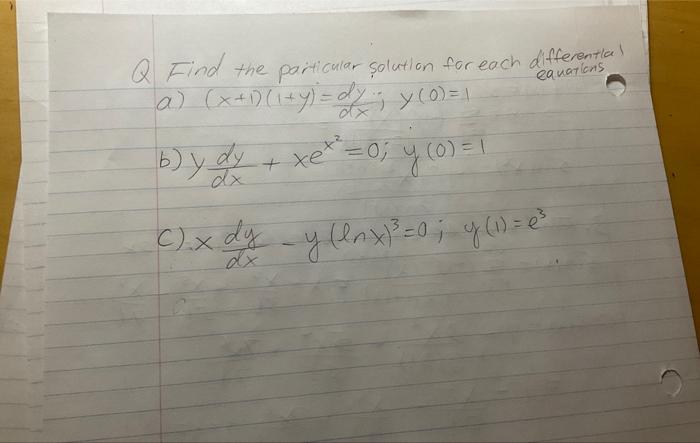 Q Find the particular solution for each differential equations
a) (x+1)(1+y)=dy/dx; y(0)=1
b) y dy/dx + xe^x^2=0; y(0)=1
c) x dy/dx - y(lnx)^3=0; y(1)=e^3